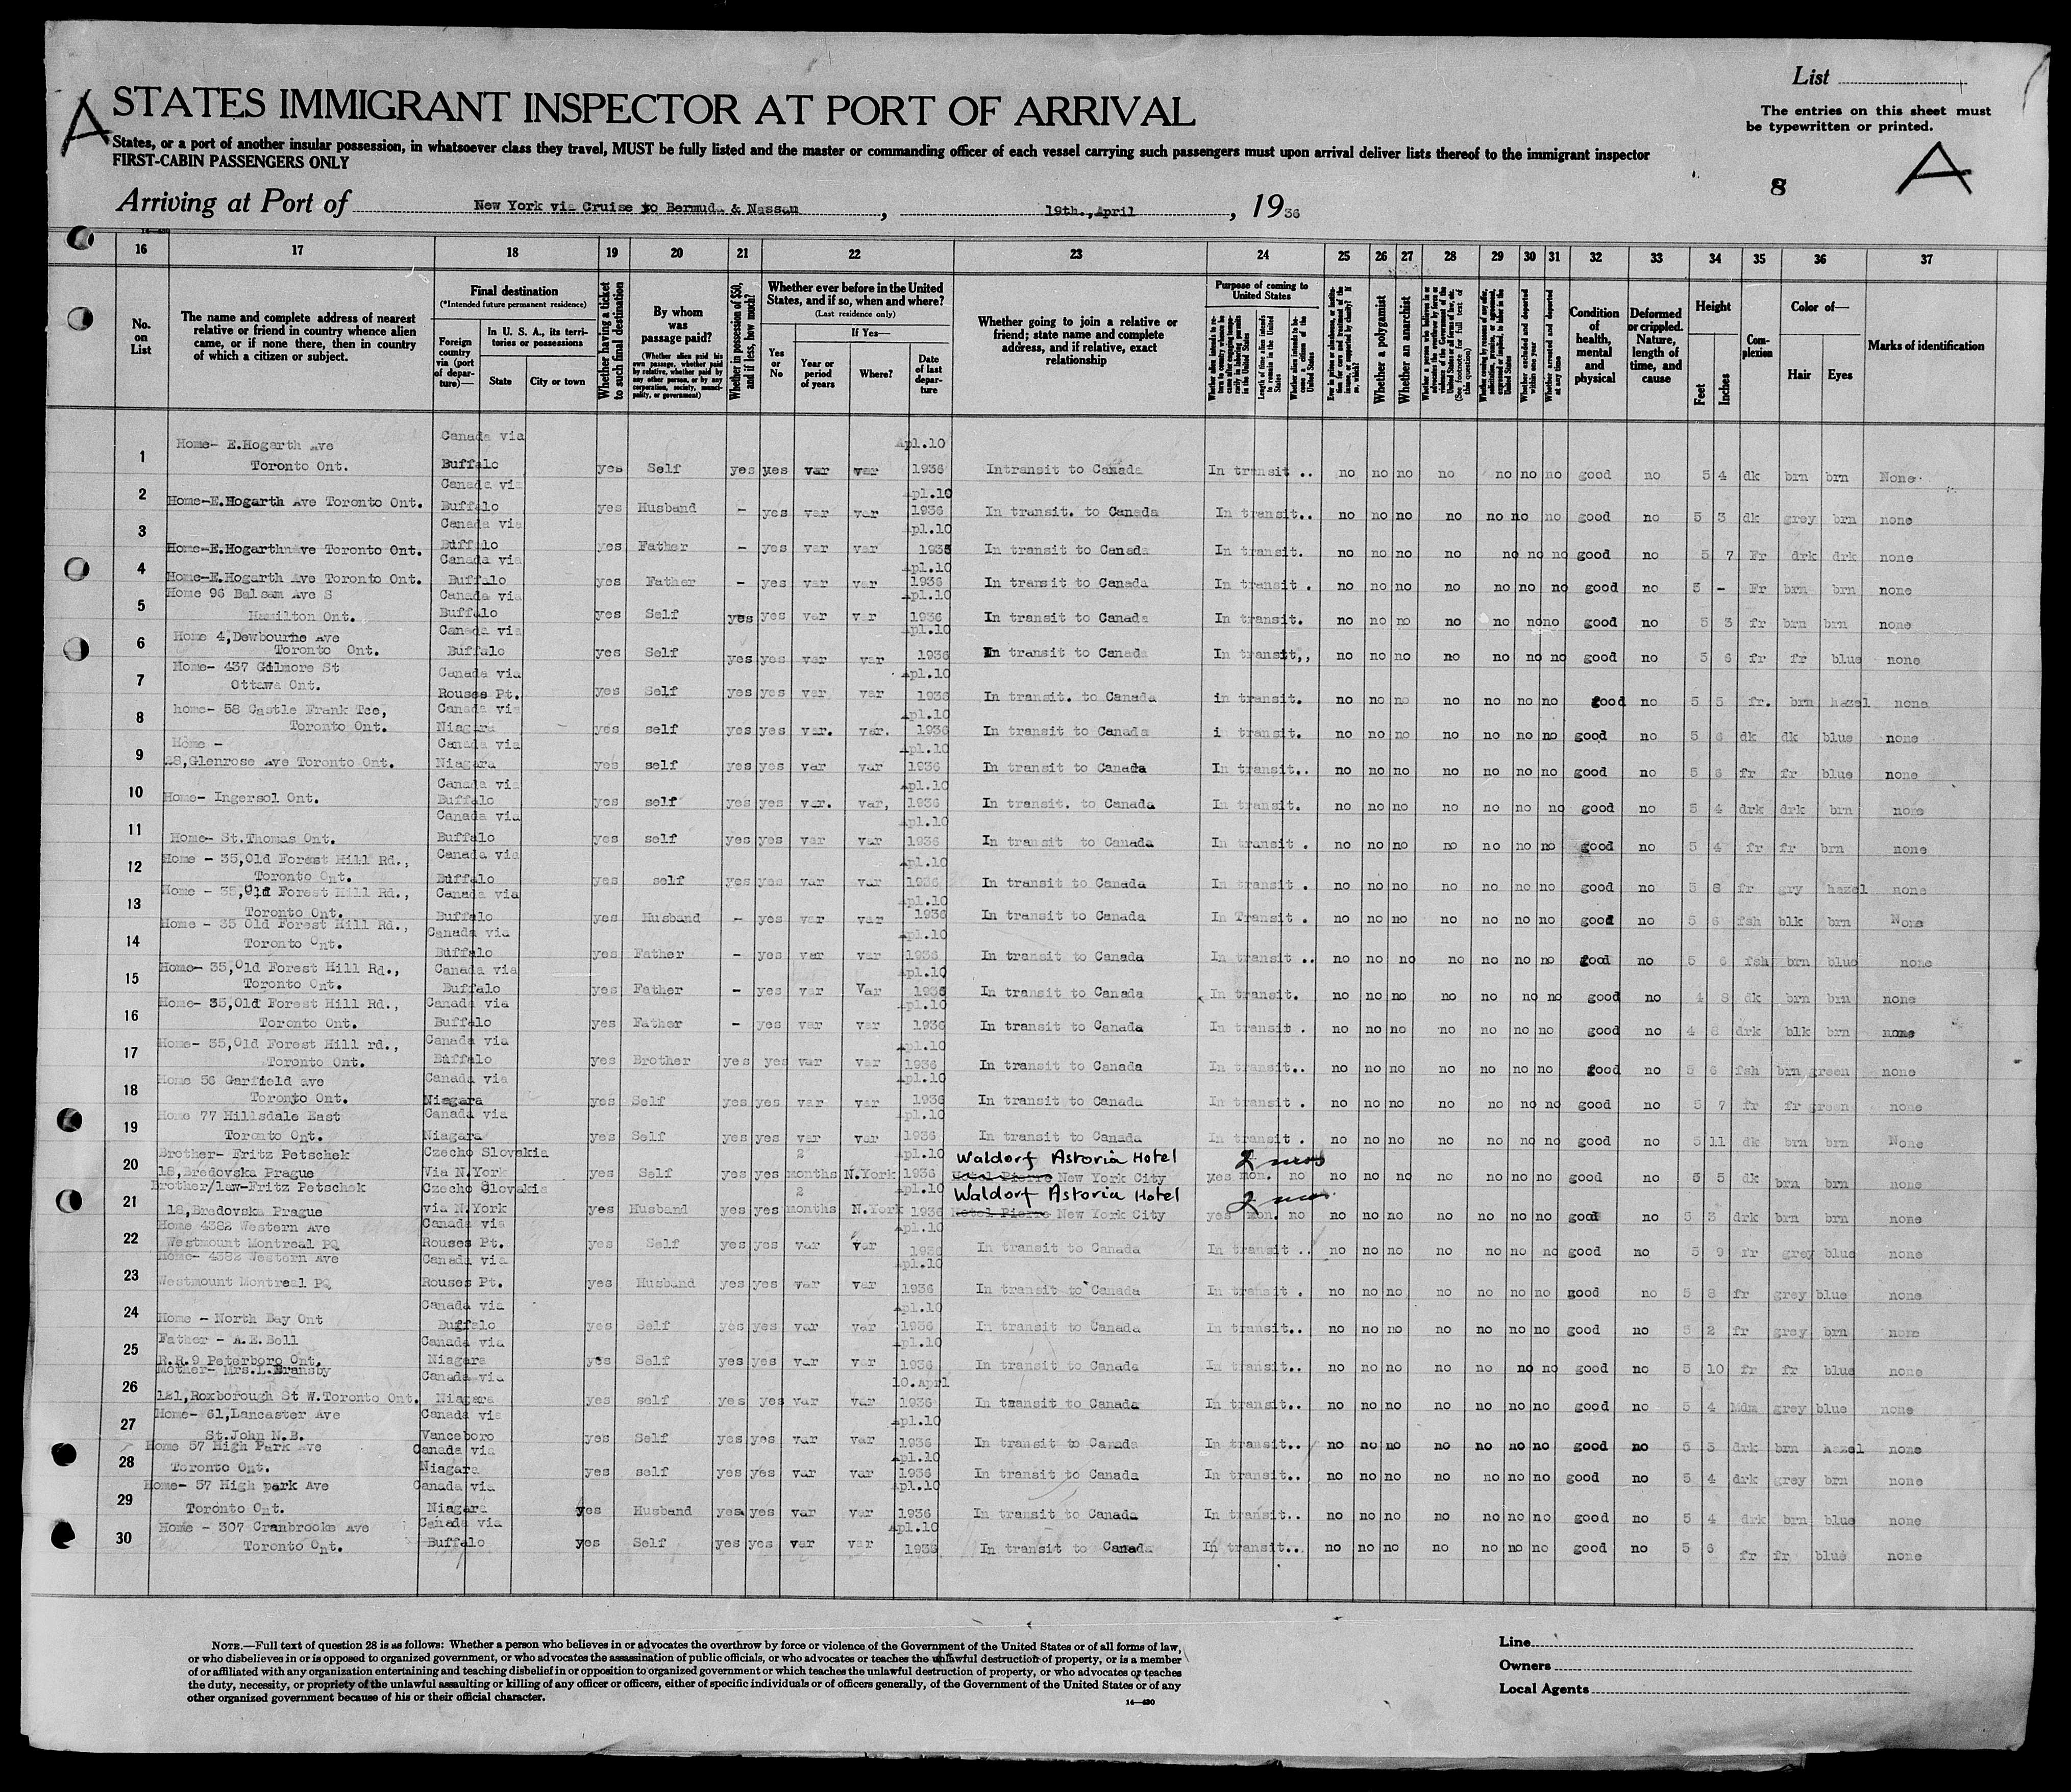 List
The entries on this sheet must
be typewritten or printed.
A STATES IMMIGRANT INSPECTOR AT PORT OF ARRIVAL
States, or a port of another insular possession, in whatsoever class they travel, MUST be fully listed and the master or commanding officer of each vessel carrying such passengers must upon arrival deliver lists thereof to the immigrant inspector
FIRST-CABIN PASSENGERS ONLY
8 A
Arriving at Port of New York via Cruise to Bermuda & Nassau, 19th.,April, 1936
16 17 18 19 20 21 22 23 24 25 26 27 28 29 30 31 32 33 34 35 36 37
No. on List
The name and complete address of nearest relative or friend in country whence alien came, or if none there, then in country of which a citizen or subject.
Final destination
(*Intended future permanent residence)
Foreign country via (port of departure)—
In U. S. A., its territories or possessions
State
City or town
Whether having a ticket to such final destination
By whom was passage paid?
(Whether alien paid his own passage, whether paid by relative, whether paid by any other person, or by any corporation, society, municipality, or government)
Whether in possession of $50, and if less, how much?
Whether ever before in the United States, and if so, when and where?
(Last residence only)
Yes or No
If Yes—
Year or period of years
Where?
Date of last departure
Whether going to join a relative or friend; state name and complete address, and if relative, exact relationship
Purpose of coming to United States
Length of time alien intends to remain in the United States
Whether alien intends to become a citizen of the United States
Whether a polygamist
Whether an anarchist
Whether arrested and deported at any time
Condition of health, mental and physical
Deformed or crippled. Nature, length of time, and cause
Height
Feet
Inches
Complexion
Color of—
Hair
Eyes
Marks of identification
1 Home- E.Hogarth Ave Toronto Ont. Canada via Buffalo yes Self yes yes var var Apl.10 1936 Intransit to Canada In transit .. no no no no no no no good no 5 4 dk brn brn None
2 Home-E.Hogarth Ave Toronto Ont. Canada via Buffalo yes Husband - yes var var Apl.10 1936 In transit. to Canada In transit.. no no no no no no no good no 5 3 dk grey brn none
3 Home-E.Hogarthnave Toronto Ont. Canada via Buffalo yes Father - yes var var Apl.10 1936 In transit to Canada In transit. no no no no no no no good no 5 7 Fr drk drk none
4 Home-E.Hogarth Ave Toronto Ont. Canada via Buffalo yes Father - yes var var Apl.10 1936 In transit to Canada In transit . no no no no no no no good no 5 - Fr brn brn none
5 Home 96 Balsam Ave S Hamilton Ont. Canada via Buffalo yes Self yes yes var var Apl.10 1936 In transit to Canada In transit. no no no no no no no good no 5 3 fr brn brn none
6 Home 4,Dewbourne Ave Toronto Ont. Canada via Buffalo yes Self yes yes var var Apl.10 1936 In transit to Canada In transit,, no no no no no no no good no 5 6 fr fr blue none
7 Home- 437 Gilmore St Ottawa Ont. Canada via Rouses Pt. yes Self yes yes var var Apl.10 1936 In transit. to Canada in transit. no no no no no no no good no 5 5 fr. brn hazel none
8 home- 58 Castle Frank Tce, Toronto Ont. Canada via Niagara yes self yes yes var. var. Apl.10 1936 In transit to Canada i transit. no no no no no no no good no 5 6 dk dk blue none
9 Home - 28,Glenrose Ave Toronto Ont. Canada via Niagara yes self yes yes var var Apl.10 1936 In transit to Canada In transit.. no no no no no no no good no 5 6 fr fr blue none
10 Home- Ingersol Ont. Canada via Buffalo yes self yes yes var. var, Apl.10 1936 In transit. to Canada In transit. no no no no no no no good no 5 4 drk drk brn none
11 Home- St.Thomas Ont. Canada via Buffalo yes self yes yes var var Apl.10 1936 In transit to Canada In transit . no no no no no no no good no 5 4 fr fr brn none
12 Home - 35,Old Forest Hill Rd., Toronto Ont. Canada via Buffalo yes self yes yes var var Apl.10 1936 In transit to Canada In transit . no no no no no no no good no 5 8 fr gry hazel none
13 Home - 35,Old Forest Hill Rd., Toronto Ont. Canada via Buffalo yes Husband - yes var var Apl.10 1936 In transit to Canada In Transit . no no no no no no no good no 5 6 fsh blk brn None
14 Home- 35 Old Forest Hill Rd., Toronto Ont. Canada via Buffalo yes Father - yes var var Apl.10 1936 In transit to Canada In transit .. no no no no no no no good no 5 6 fsh brn blue none
15 Home- 35,Old Forest Hill Rd., Toronto Ont. Canada via Buffalo yes Father - yes var Var Apl.10 1936 In transit to Canada In transit. no no no no no no no good no 4 8 dk brn brn none
16 Home- 35,Old Forest Hill Rd., Toronto Ont. Canada via Buffalo yes Father - yes var var Apl.10 1936 In transit to Canada In transit . no no no no no no no good no 4 8 drk blk brn none
17 Home- 35,Old Forest Hill rd., Toronto Ont. Canada via Buffalo yes Brother yes yes var var Apl.10 1936 In transit to Canada In transit.. no no no no no no no good no 5 6 fsh brn green none
18 Home 56 Garfield ave Toronto Ont. Canada via Niagara yes Self yes yes var var Apl.10 1936 In transit to Canada In transit . no no no no no no no good no 5 7 fr fr green none
19 Home 77 Hillsdale East Toronto Ont. Canada via Niagara yes Self yes yes var var Apl.10 1936 In transit to Canada In transit . no no no no no no no good no 5 11 dk brn brn None
20 Brother- Fritz Petschek 18,Bredovska Prague Czecho Slovakia Via N.York yes Self yes yes 2 months N.York Apl.10 1936 Waldorf Astoria Hotel Hotel Pierre New York City yes 2 mos mon. no no no no no no no no good no 5 5 dk brn brn none
21 Brother/law-Fritz Petschek 18,Bredovska Prague Czecho Slovakia via N.York yes Husband yes yes 2 months N.York Apl.10 1936 Waldorf Astoria Hotel Hotel Pierre New York City yes 2 mos mon. no no no no no no no no good no 5 3 drk brn brn none
22 Home 4382 Western Ave Westmount Montreal PQ Canada via Rouses Pt. yes Self yes yes var var Apl.10 1936 In transit to Canada In transit .. no no no no no no no good no 5 9 fr grey blue none
23 Home- 4382 Western Ave Westmount Montreal PQ Canada via Rouses Pt. yes Husband yes yes var var Apl.10 1936 In transit to Canada In transit . no no no no no no no good no 5 8 fr grey blue none
24 Home - North Bay Ont Canada via Buffalo yes Self yes yes var var Apl.10 1936 In transit to Canada In transit.. no no no no no no no good no 5 2 fr grey brn none
25 Father - A.E.Bell R.R.9 Peterboro Ont. Canada via Niagara yes Self yes yes var var Apl.10 1936 In transit to Canada In transit.. no no no no no no no good no 5 10 fr fr blue none
26 Mother- Mrs.L.Bransby 121,Roxborough St W.Toronto Ont. Canada via Niagara yes self yes yes var var 10.Aprl 1936 In transit to Canada In transit.. no no no no no no no good no 5 4 Mdm grey blue none
27 Home- 61,Lancaster Ave St.John N.B. Canada via Vanceboro yes Self yes yes var var Apl.10 1936 In transit to Canada In transit.. no no no no no no no good no 5 3 drk brn hazel none
28 Home 57 High Park Ave Toronto Ont. Canada via Niagara yes self yes yes var var Apl.10 1936 In transit to Canada In transit.. no no no no no no no good no 5 4 drk grey brn none
29 Home- 57 High park Ave Toronto Ont. Canada via Niagara yes Husband yes yes var var Apl.10 1936 In transit to Canada In transit.. no no no no no no no good no 5 4 drk brn blue none
30 Home - 307 Cranbrooke Ave Toronto Ont. Canada via Buffalo yes Self yes yes var var Apl.10 1936 In transit to Canada In transit.. no no no no no no no good no 5 6 fr fr blue none
NOTE.—Full text of question 28 is as follows: Whether a person who believes in or advocates the overthrow by force or violence of the Government of the United States or of all forms of law,
or who disbelieves in or is opposed to organized government, or who advocates the assassination of public officials, or who advocates or teaches the unlawful destruction of property, or is a member
of or affiliated with any organization entertaining and teaching disbelief in or opposition to organized government or which teaches the unlawful destruction of property, or who advocates or teaches
the duty, necessity, or propriety of the unlawful assaulting or killing of any officer or officers, either of specific individuals or of officers generally, of the Government of the United States or of any
other organized government because of his or their official character.
14—430
Line
Owners
Local Agents